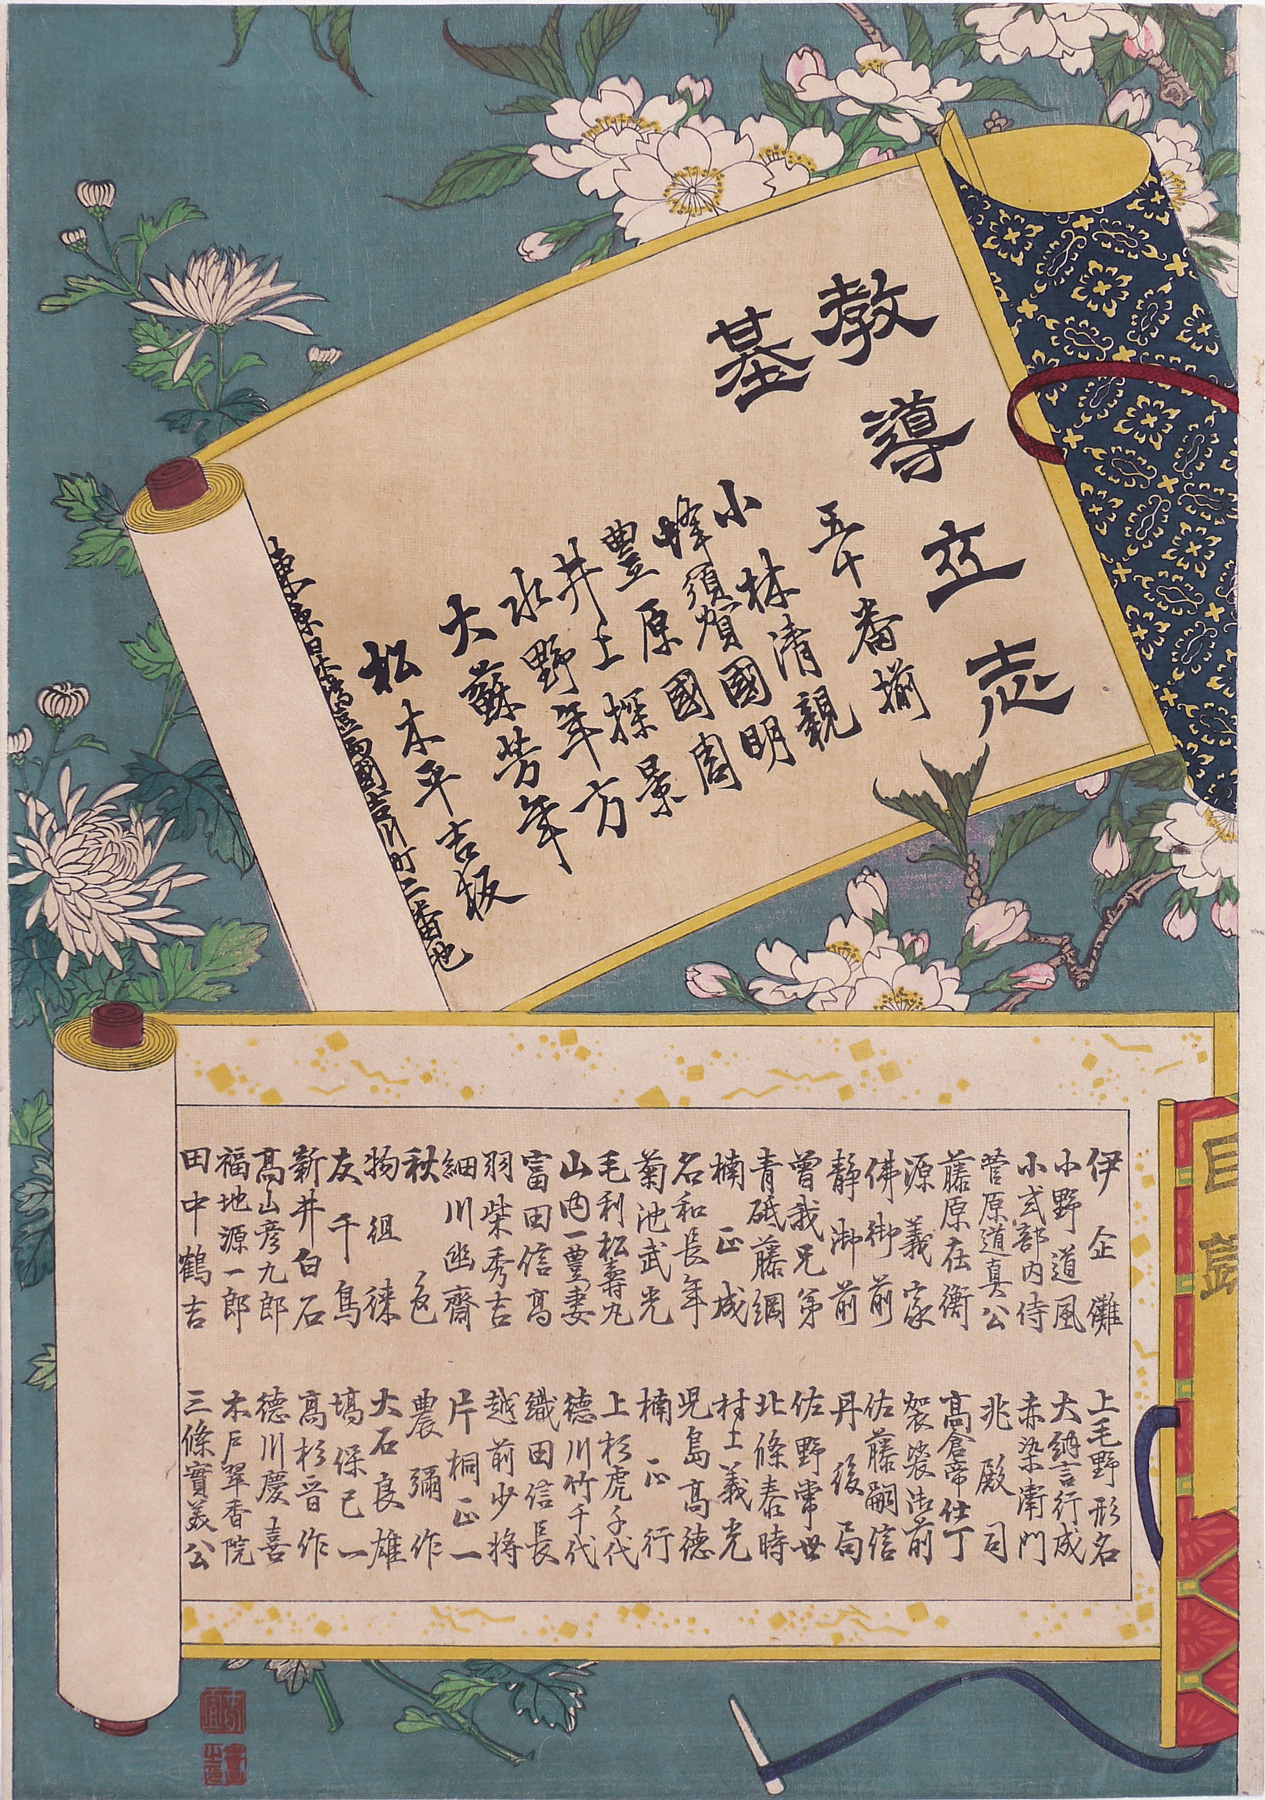 教導立志
基
五十番揃
小林清親
蜂須賀國明
豊原國周
井上探景
水野年方
大蘇芳年
松木平吉板
東京日本橋區両國吉川町二番地
目録
伊企儺
小野道風
小式部内侍
菅原道真公
藤原在衡
源義家
佛御前
静御前
曽我兄弟
青砥藤綱
楠正成
名和長年
菊池武光
毛利松壽丸
山内一豊妻
富田信高
羽柴秀吉
細川幽齋
秋色
物徂徠
友千鳥
新井白石
高山彦九郎
福地源一郎
田中鶴吉
上毛野形名
大納言行成
赤染衛門
兆殿司
高倉帝仕丁
袈裟御前
佐藤嗣信
丹後局
佐野常世
北條泰時
村上義光
児島高徳
楠正行
上杉虎千代
徳川竹千代
織田信長
越前少将
片桐正一
農彌作
大石良雄
塙保己一
高杉晋作
徳川慶喜
木戸翠香院
三條實美公